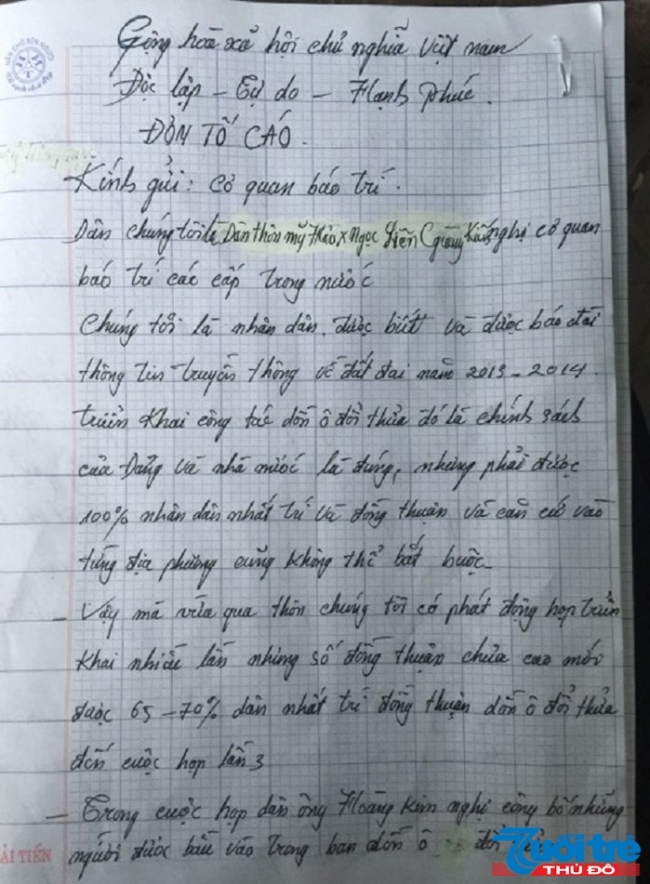 Cộng hòa xã hội chủ nghĩa Việt nam
Độc lập - Tự do - Hạnh phúc.
ĐƠN TỐ CÁO.
Kính gửi: cơ quan báo trí.
Dân chúng tôi là Dân thôn mỹ Hảo x Ngọc Liên C giàng Kiến nghị cơ quan
báo trí các cấp trong nước
Chúng tôi là nhân dân. được biết và được báo đài
thông tin truyền thông về đất đai năm 2013 - 2014.
triển khai công tác dồn ô đổi thửa đó là chính sách
của Đảng và nhà nước là đúng, nhưng phải được
100% nhân dân nhất trí và đồng thuận và căn cứ vào
từng địa phương cũng không thể bắt buộc.
- Vậy mà vừa qua thôn chúng tôi có phát động họp triển
khai nhiều lần nhưng số đồng thuận chưa cao mới
được 65 - 70% dân nhất trí đồng thuận dồn ô đổi thửa
đến cuộc họp lần 3
- Trong cuộc họp dân ông Hoàng Kim nghị công bố những
người được bầu vào trong ban dồn ô đổi
ẢI TIẾN
Tuổi trẻ
THỦ ĐÔ